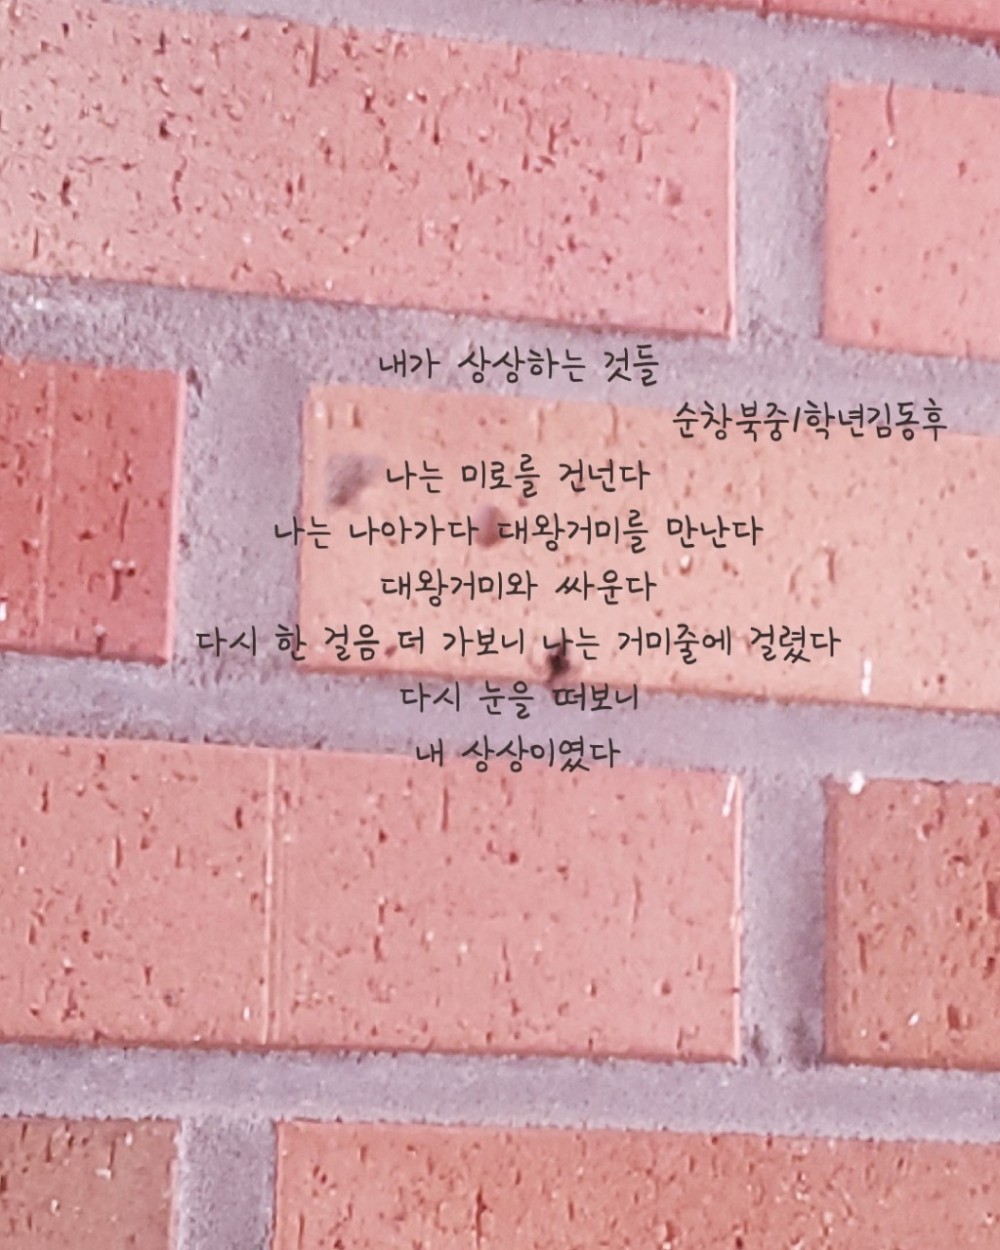 내가 상상하는 것들
순창북중1학년김동후
나는 미로를 건넌다
나는 나아가다 대왕거미를 만난다
대왕거미와 싸운다
다시 한 걸음 더 가보니 나는 거미줄에 걸렸다
다시 눈을 떠보니
내 상상이였다